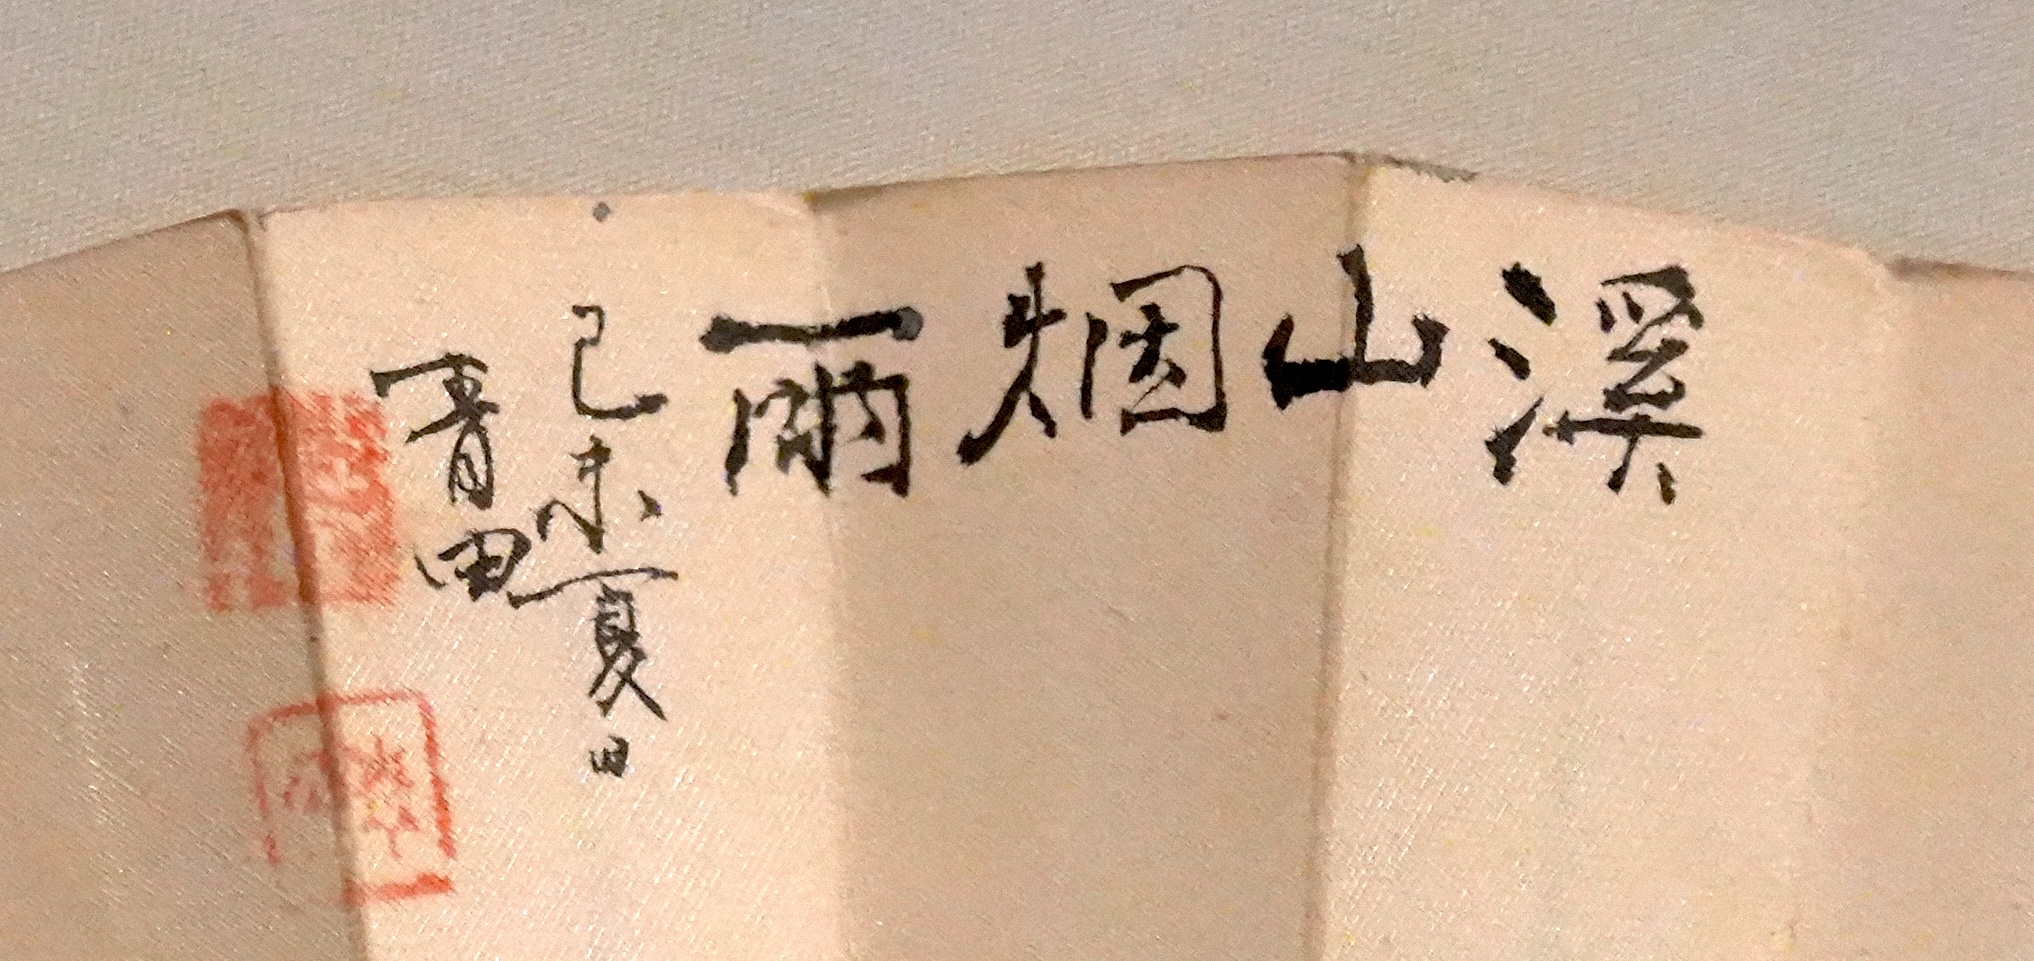 溪山烟雨
己未夏日
青田